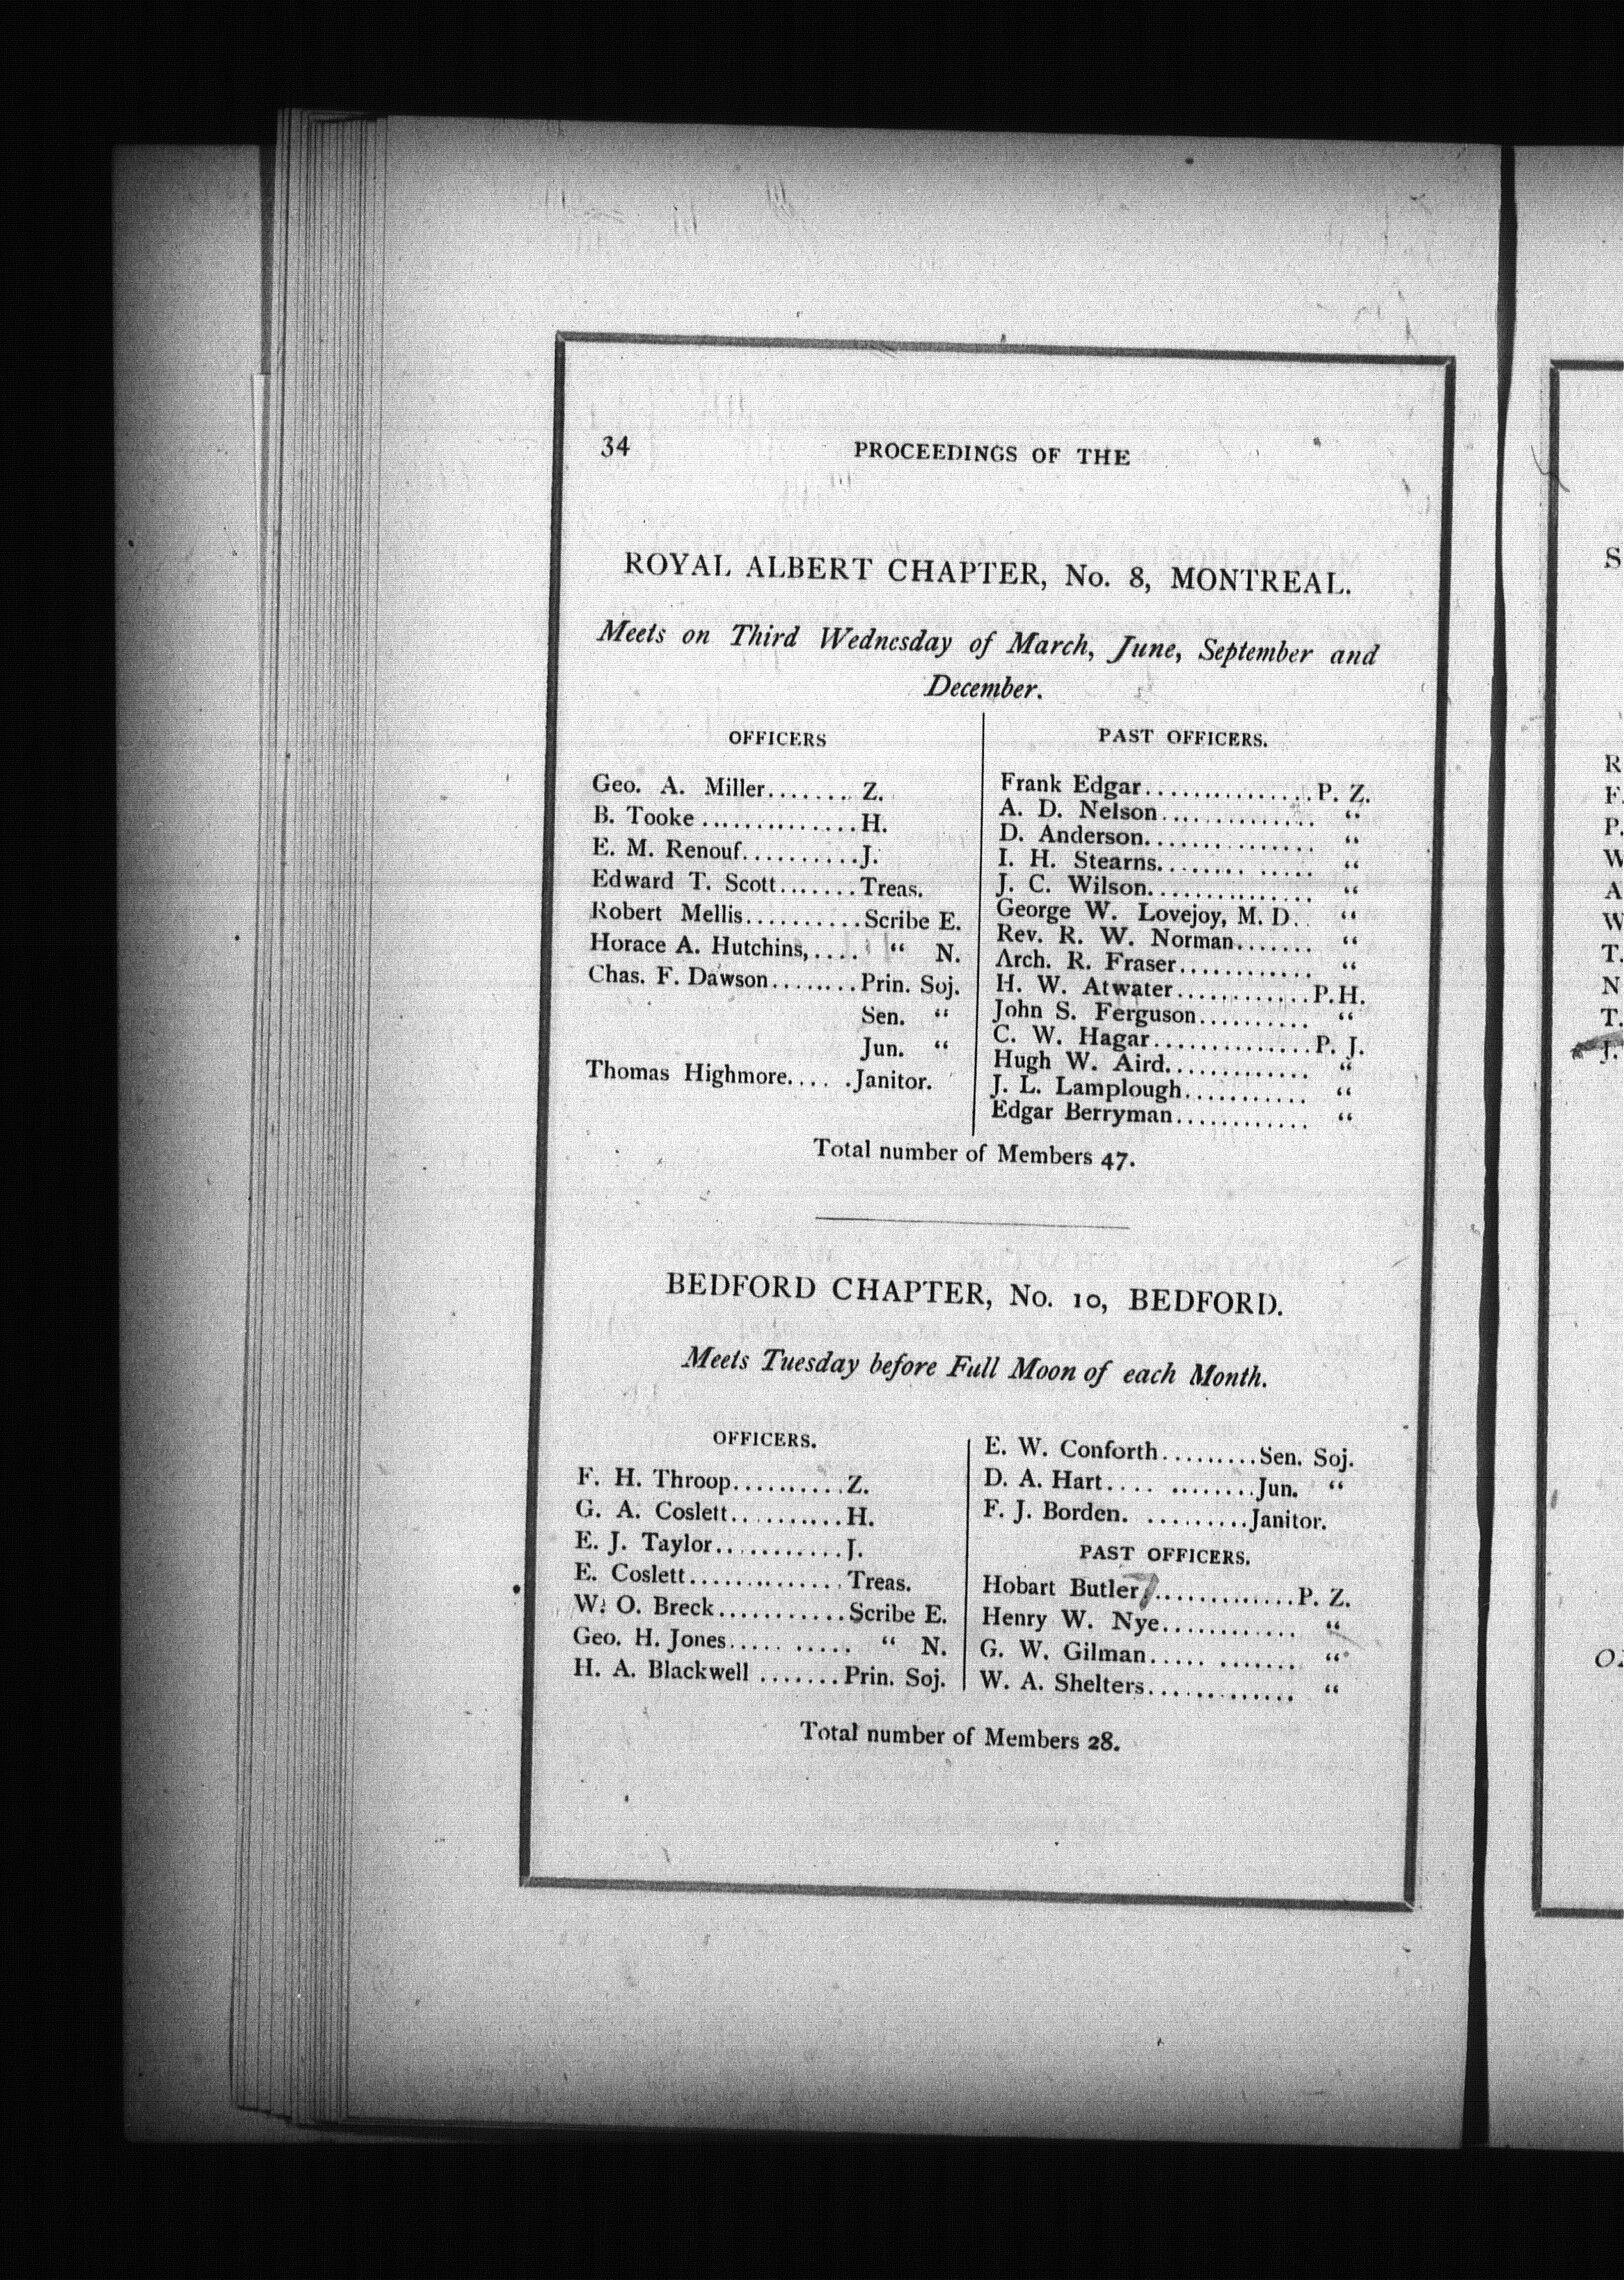 34 PROCEEDINGS OF THE
ROYAL ALBERT CHAPTER, No. 8, MONTREAL.
Meets on Third Wednesday of March, June, September and
December.
OFFICERS
Geo. A. Miller........ Z.
B. Tooke ..............H.
E. M. Renouf..........J.
Edward T. Scott.......Treas.
Robert Mellis..........Scribe E.
Horace A. Hutchins,.... " N.
Chas. F. Dawson........Prin. Soj.
Sen. "
Jun. "
Thomas Highmore.... .Janitor.
PAST OFFICERS.
Frank Edgar...............P. Z.
A. D. Nelson.............. "
D. Anderson............... "
I. H. Stearns........ ..... "
J. C. Wilson............... "
George W. Lovejoy, M. D.. "
Rev. R. W. Norman....... "
Arch. R. Fraser............ "
H. W. Atwater............P. H.
John S. Ferguson.......... "
C. W. Hagar..............P. J.
Hugh W. Aird............. "
J. L. Lamplough........... "
Edgar Berryman............ "
Total number of Members 47.
BEDFORD CHAPTER, No. 10, BEDFORD.
Meets Tuesday before Full Moon of each Month.
OFFICERS.
F. H. Throop..........Z.
G. A. Coslett..........H.
E. J. Taylor...........J.
E. Coslett..............Treas.
W. O. Breck...........Scribe E.
Geo. H. Jones..... ..... " N.
H. A. Blackwell .......Prin. Soj.
E. W. Conforth.........Sen. Soj.
D. A. Hart.... ........Jun. "
F. J. Borden. .........Janitor.
PAST OFFICERS.
Hobart Butler..............P. Z.
Henry W. Nye............ "
G. W. Gilman..... ....... "
W. A. Shelters............. "
Total number of Members 28.
S
R
F.
P.
W
A
W
T.
N
T.
J.